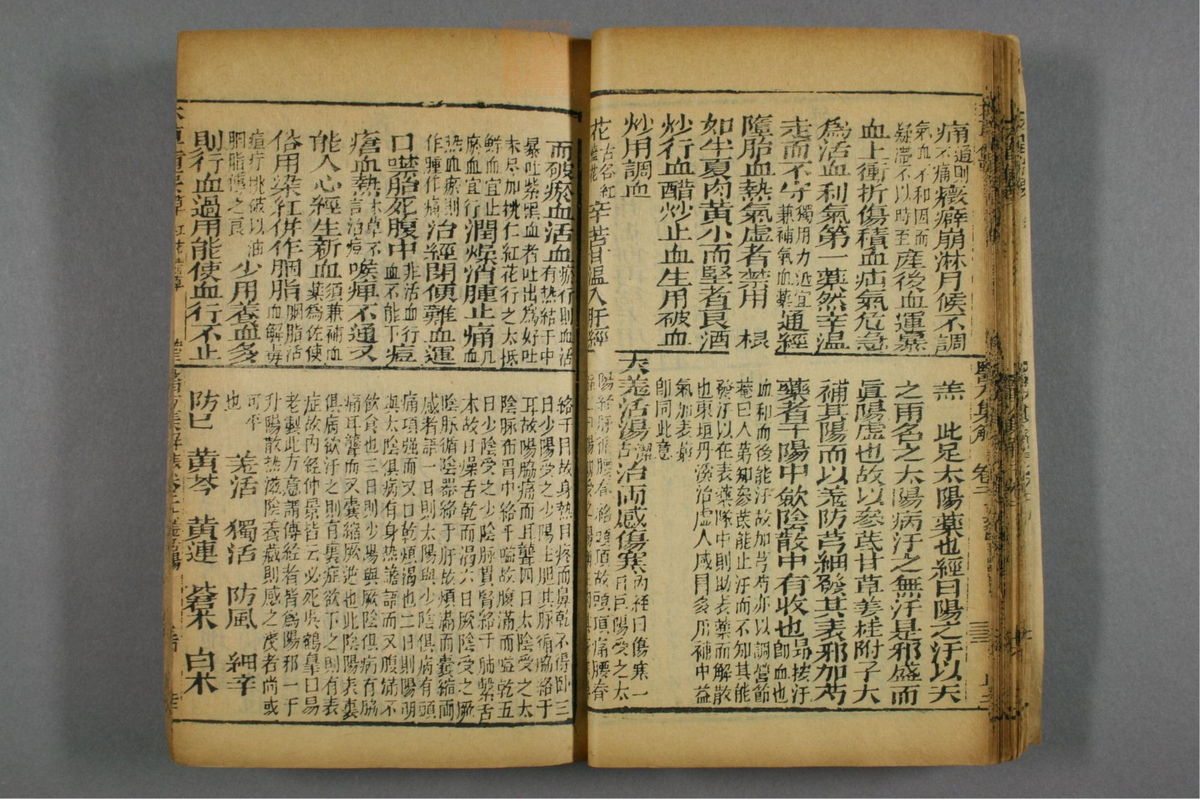 痛通則不痛癥癖崩淋月候不調
氣血不和因而疑滯不以時至産後血運暴
血上衝折傷積血疝氣危急
為活血利氣第一藥然辛溫
走而不守獨用力迅宜兼補氣血藥通經
墮胎血熱氣虛者禁用 根
如生夏肉黃小而堅者良酒
炒行血醋炒止血生用破血
炒用調血
花古名紅藍花辛苦甘溫入肝經
而破瘀血活血瘀行則血活有熱結于中
暴吐紫黑血者吐出為好吐
未尽加桃仁紅花行之大抵
鮮血宜止瘀血宜行潤燥消腫止痛凡血
熱血瘀則作腫作痛治經閉便難血運
口噤胎死腹中非活血行血不能下痘
瘡血熱本草不言治痘喉痺不通又
能入心經生新血須兼補血藥為佐使
俗用染紅併作胭脂胭脂活血解毒
痘疔挑破以油胭脂傅之良少用養血多
則行血過用能使血行不止
羗 此足太陽藥也經曰陽之汗以天
之雨名之太陽病汗之無汗是邪盛而
眞陽虛也故以參茋甘草姜桂附子大
補其陽而以羗防芎細發其表邪加芍
藥者于陽中斂陰散中有收也昂按汗即血也
血和而後能汗故加芎芍亦以調營節
菴曰人第知參茋能止汗而不知其能
發汗以在表藥隊中則助表藥而解散
也東垣丹溪治虛人感冒多用補中益
氣加表藥
即同此意
大羗活湯潔古治両感傷寒內經曰傷寒一日巨陽受之太
陽經脉循腰脊絡頭項故頭項痛腰脊
絡于目故身熱目疼而鼻乾不得卧三
日少陽受之少陽主胆其脉循脇絡于
耳故胸脇痛而耳聾四日太陰受之太
陰脉布胃中絡于嗌故腹滿而嗌乾五
日少陰受之少陰脉貫腎絡于肺繫舌
本故口燥舌乾而渴六日厥陰受之厥
陰脉循陰器絡于肝故煩滿而囊縮両
感者謂一日則太陽與少陰俱病有頭
痛項強而又口乾煩渴也二日則陽明
與太陰俱病有身熱譫語而又腹滿不
飲食也三日則少陽與厥陰俱病有脇
痛耳聾而又囊縮厥逆也此陰陽表裏
俱病欲汗之則有裏症欲下之則有表
症故內經仲景皆云必死吳鶴皐曰易
老製此方意謂傳經者皆為陽邪一于
升陽散熱滋陰養藏則感之淺者尚或
可平也 羗活 獨活 防風 細辛
防已 黃芩 黃連 蒼朮 白朮